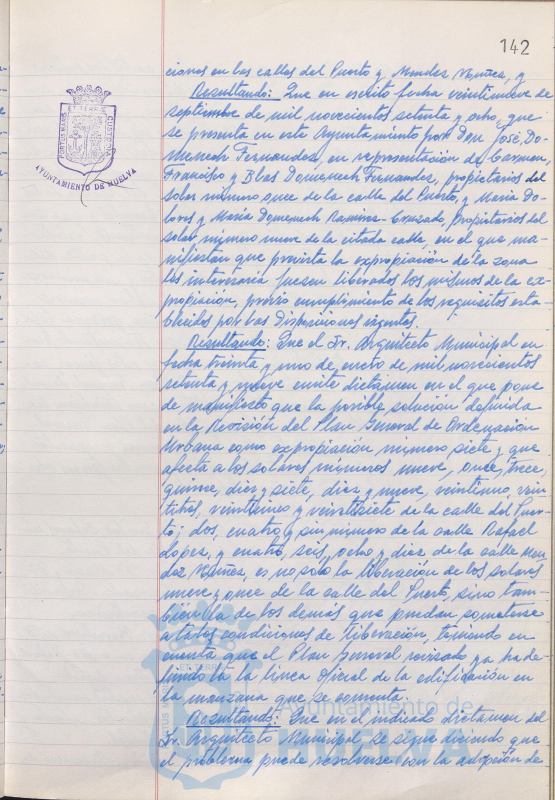 142
ciones en las calles del Puerto y Mendez Nuñez, y
Resultando: Que en escrito fecha veintinueve de
septiembre de mil novecientos setenta y ocho, que
se presenta en este Ayuntamiento por Don José Do-
menech Fernandez, en representación de Carmen,
Francisco y Blas Domenech Fernandez, propietarios del
solar número once de la calle del Puerto, y Maria Do-
lores y Maria Domenech Ramirez-Cruzado, propietarios del
solar número nueve de la citada calle, en el que ma-
nifiestan que prevista la expropiación de la zona
les interesaria fuesen liberados los mismos de la ex-
propiación, previo cumplimiento de los requisitos esta-
blecidos por las Disposiciones vigentes.
Resultando: Que el Sr. Arquitecto Municipal en
fecha treinta y uno de enero de mil novecientos
setenta y nueve emite dictamen en el que pone
de manifiesto que la posible solución definida
en la Revisión del Plan General de Ordenación
Urbana como expropiación número siete y que
afecta a los solares números nueve, once, trece,
quince, diez y siete, diez y nueve, veintiuno, vein
titres, veinticinco y veintisiete de la calle del Puer-
to; dos, cuatro y sin número de la calle Rafael
Lopez, y cuatro, seis, ocho y diez de la calle Men
dez Nuñez, es no solo la liberación de los solares
nueve y once de la calle del Puerto, sino tam-
bien la de los demás que puedan someterse
a tales condiciones de liberación, teniendo en
cuenta que el Plan General revisado ya ha de-
finido la linea oficial de la edificación en
la manzana que se comenta.
Resultando: Que en el indicado dictamen del
Sr. Arquitecto Municipal se sigue diciendo que
el problema puede resolverse con la adopción de
AYUNTAMIENTO DE HUELVA
Ayuntamiento de
HUELVA